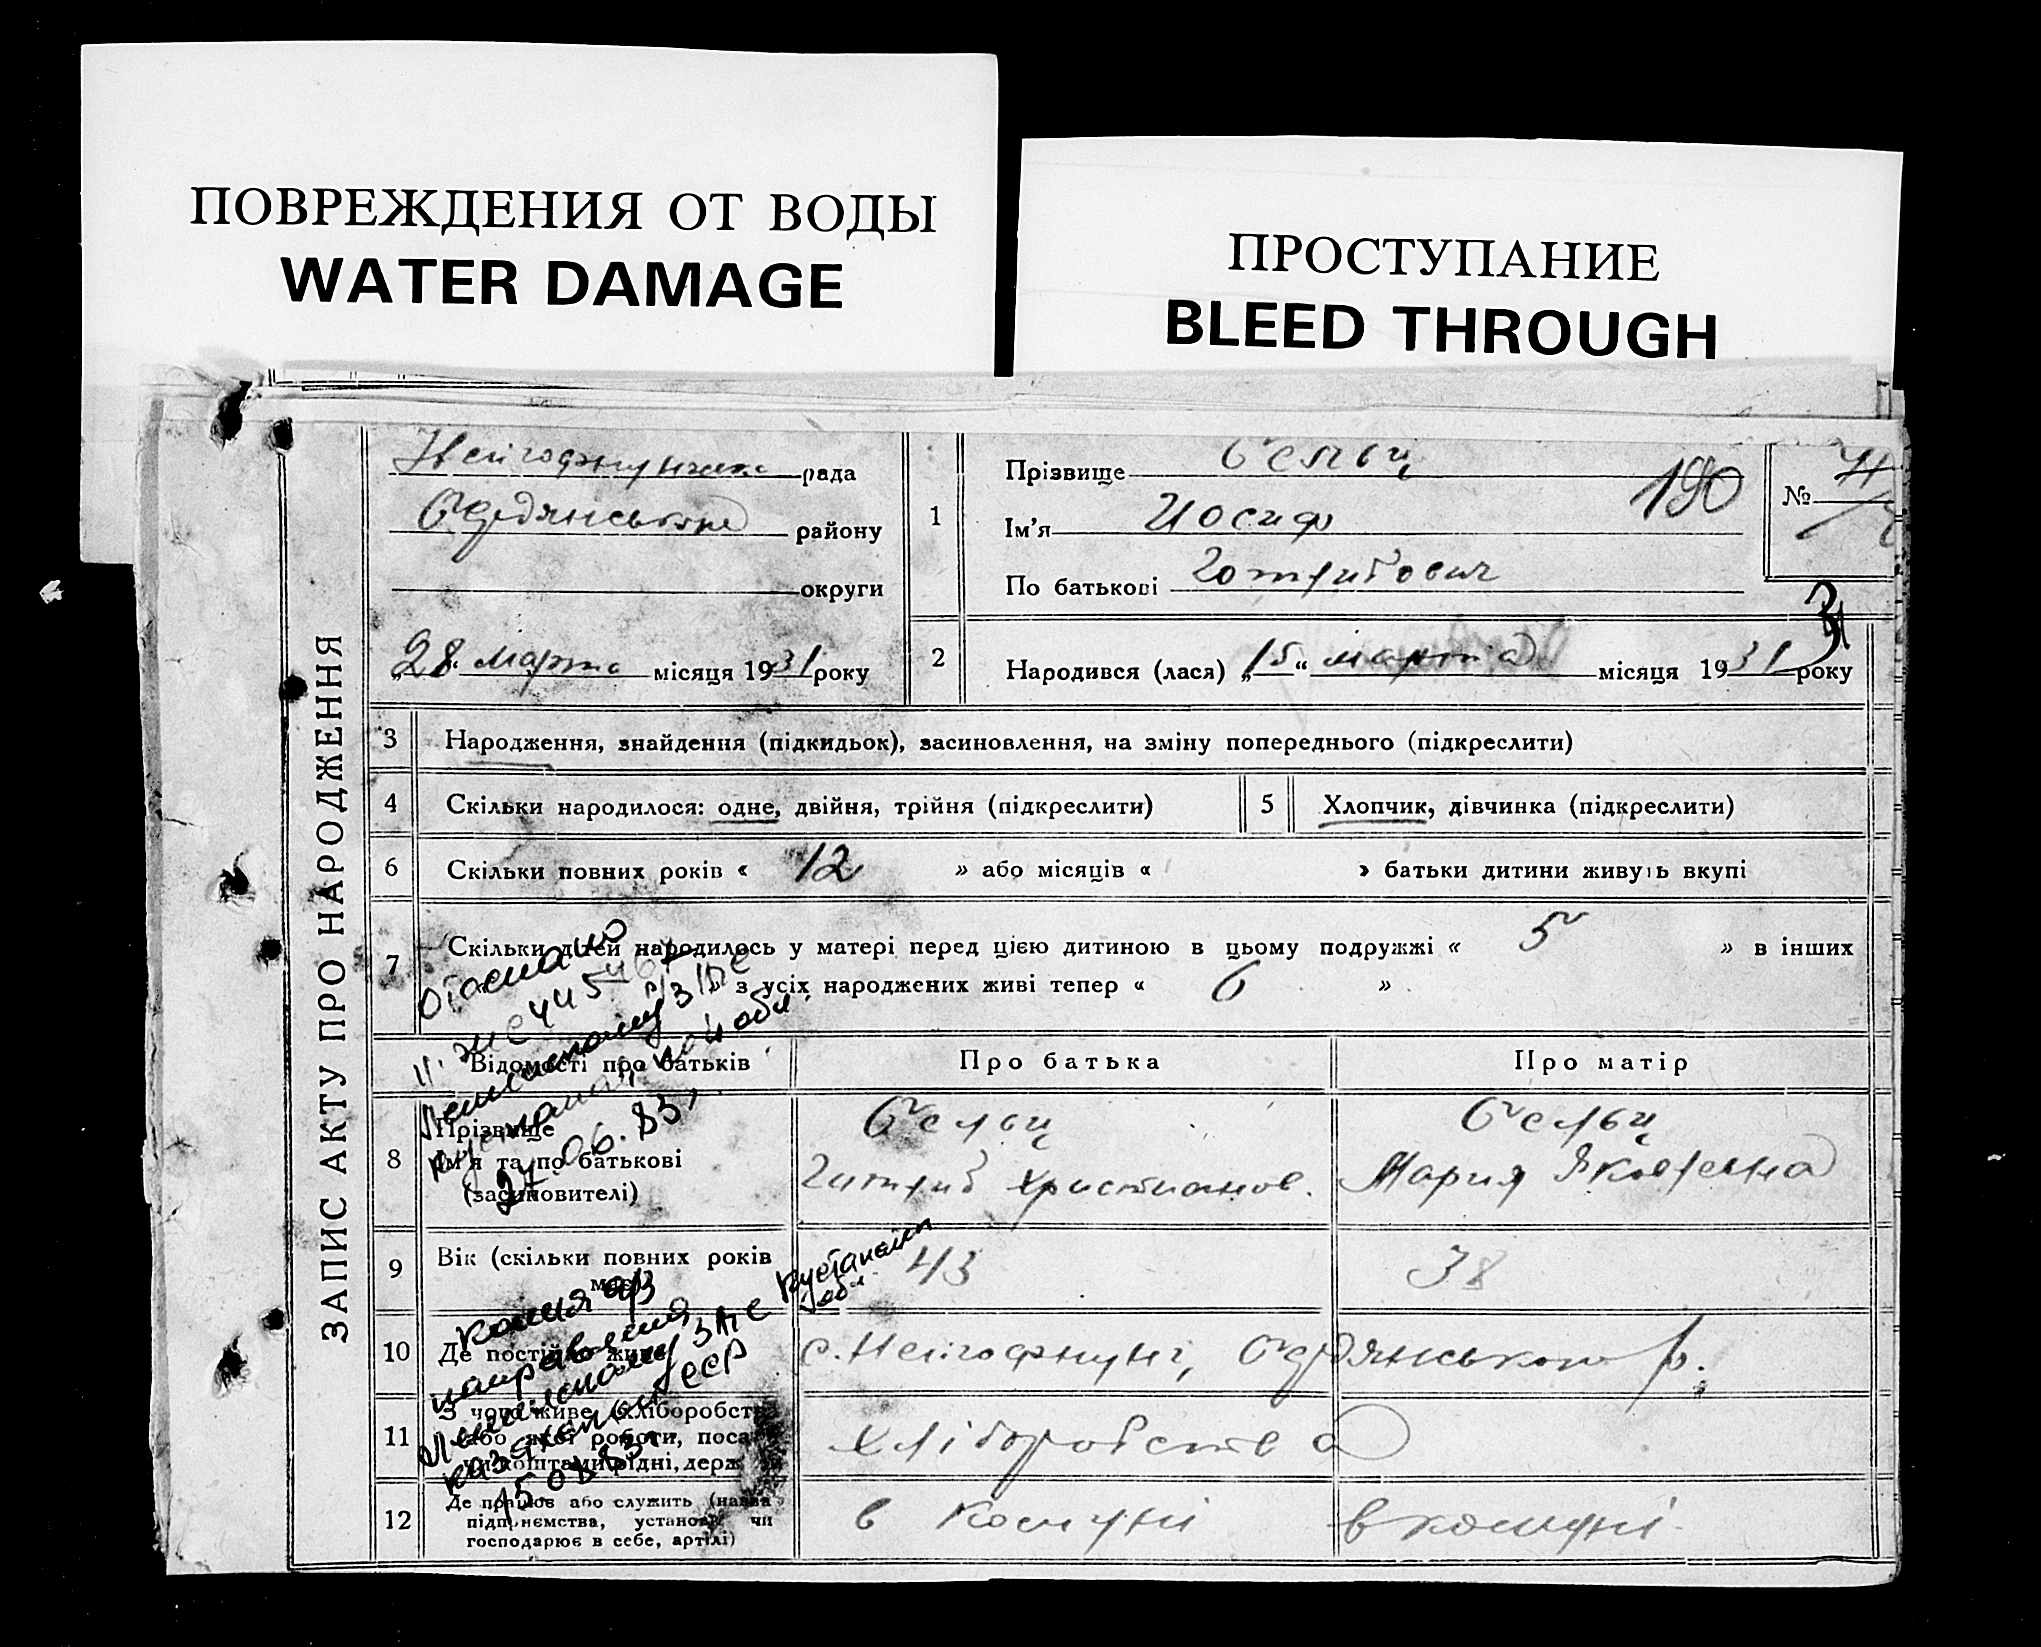 ПОВРЕЖДЕНИЯ ОТ ВОДЫ
WATER DAMAGE
ПРОСТУПАНИЕ
BLEED THROUGH
ЗАПИС АКТУ ПРО НАРОДЖЕННЯ
рада
району
округи
„28“ марта місяця 1931 року
1
Прізвище
Ім’я Иосиф
По батькові Готлибович
190
№
2
Народився (лася) „15“ марта місяця 1931 року
3 Народження, знайдення (підкидьок), засиновлення, на зміну попереднього (підкреслити)
4 Скільки народилося: одне, двійня, трійня (підкреслити)
5 Хлопчик, дівчинка (підкреслити)
6 Скільки повних років « 12 » або місяців « » батьки дитини живуть вкупі
7 Скільки дітей народилось у матері перед цією дитиною в цьому подружжі « 5 » в інших
» з усіх народжених живі тепер « 6 »
Відомості про батьків
Про батька
Про матір
8 Прізвище
Ім’я та по батькові
(засиновителі)
Готлиб Христианов.
Мария Яковлевна
27.06.83г.
9 Вік (скільки повних років має)
43
38
10 Де постійно живе
с. Нейгофнунг, р.
копия а/з
направлена
Ленинскому ЗАГС Кустанайск обл
Казахской ССР
11 З чого живе (хліборобства
або якої роботи, поса
чи коштами рідні, держ
хліборобства
12 Де працює або служить (назва
підприємства, установи чи
господарює в себе, артілі)
в комуні
в комуні